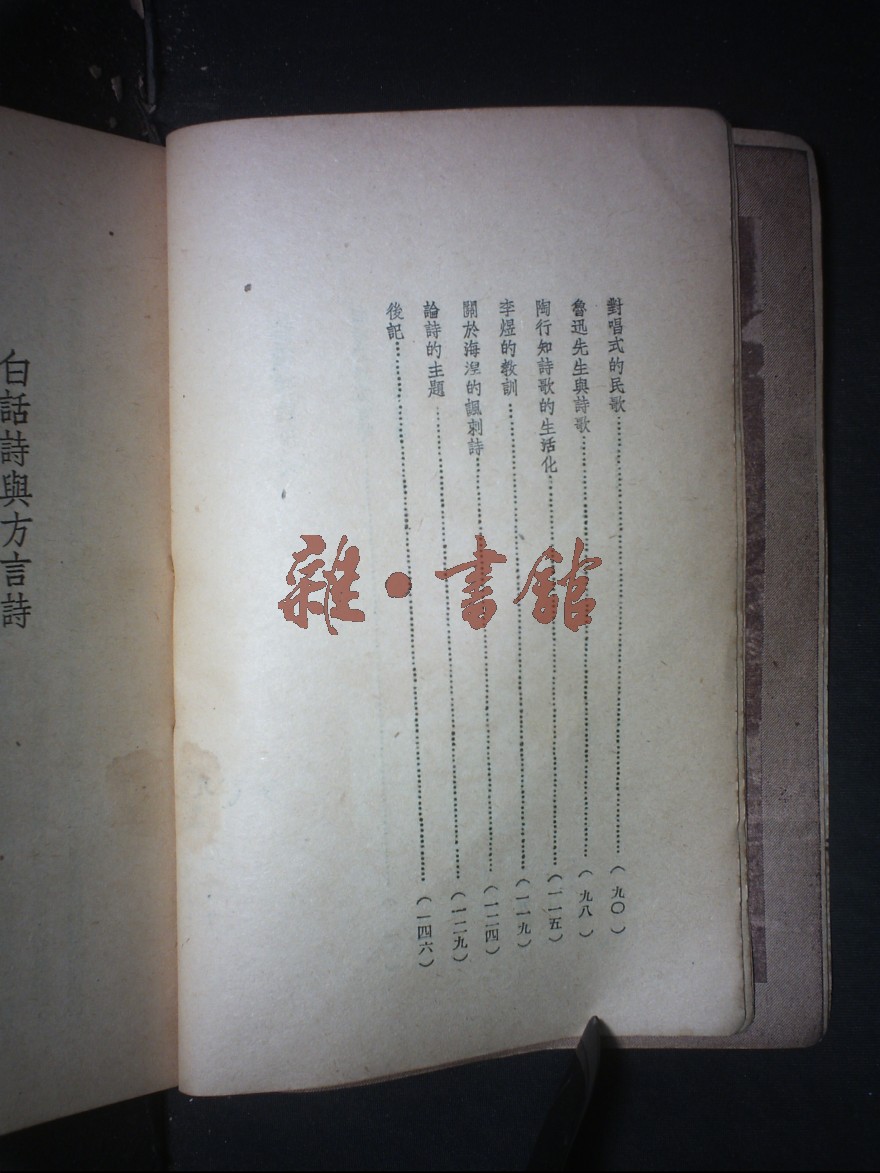 對唱式的民歌……(九〇)
魯迅先生與詩歌……(九八)
陶行知詩歌的生活化……(一一五)
李煜的教訓……(一一九)
關於海湼的諷刺詩……(一二四)
論詩的主題……(一二九)
後記……(一四六)
白話詩與方言詩
雜•書館